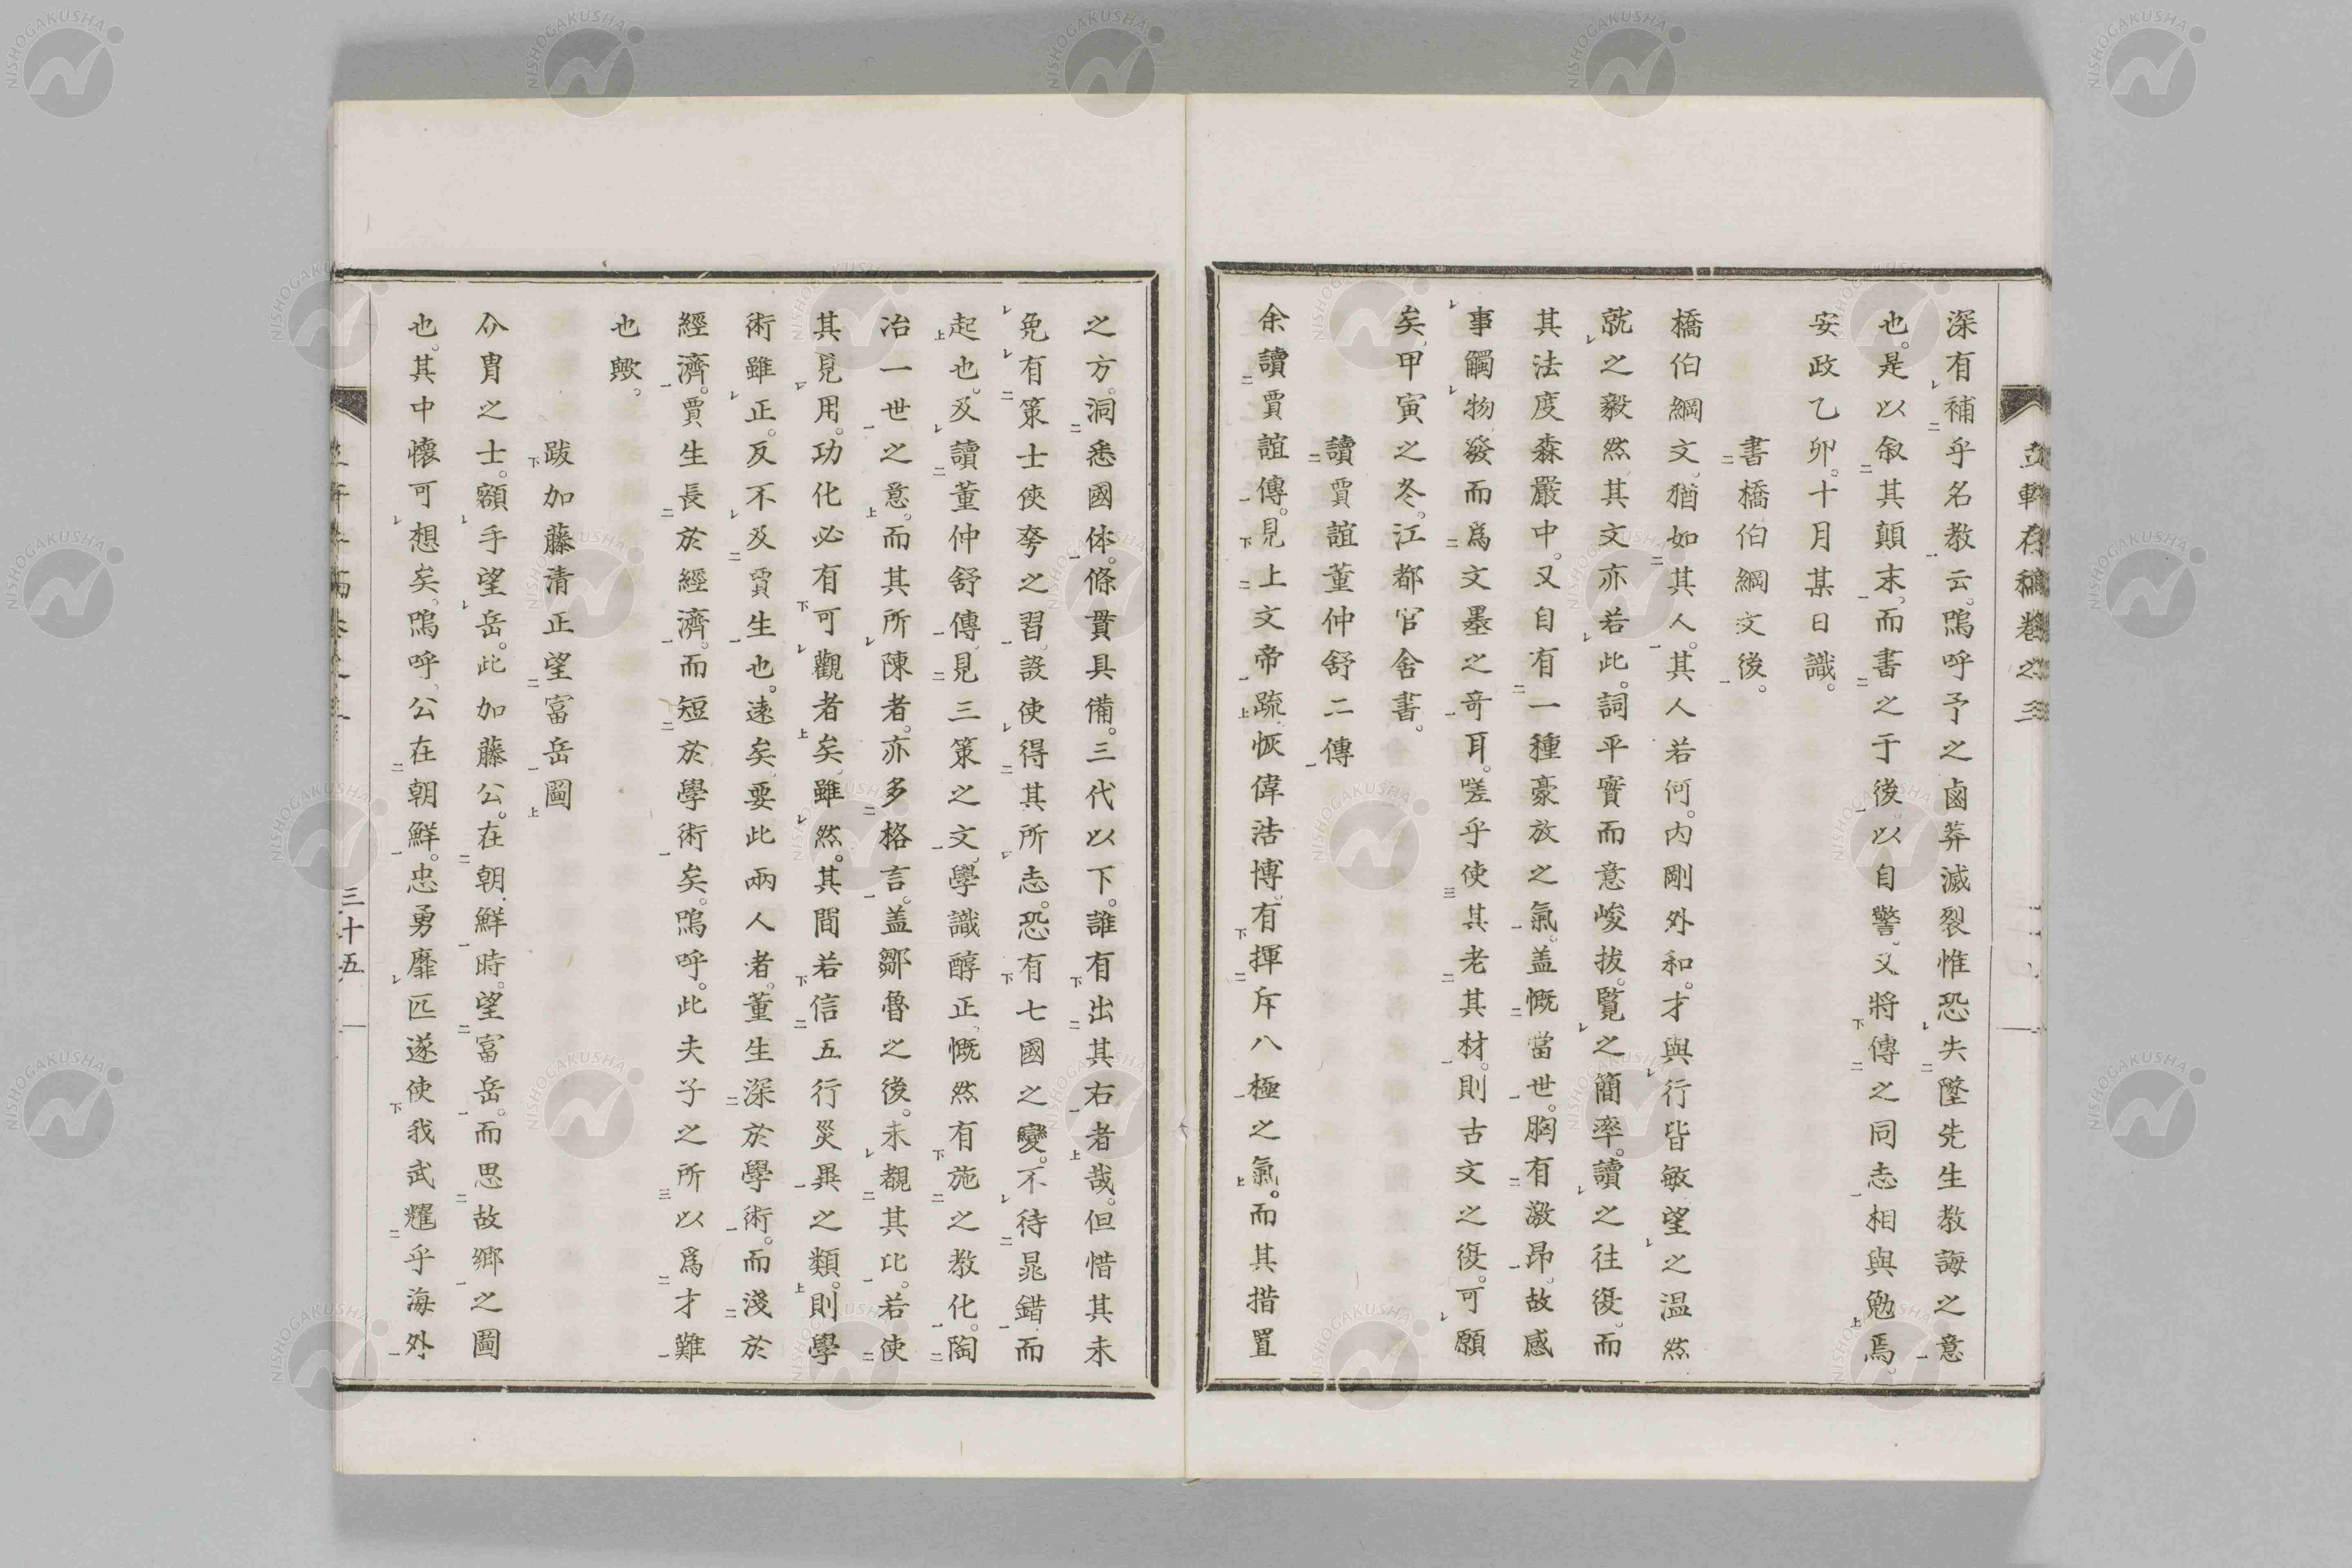 立軒存稿卷之三
深有補乎名教云。嗚呼予之鹵莽滅裂惟恐失墜先生教誨之意
也。是以叙其顛末。而書之于後。以自警。又將傳之同志相與勉焉。
安政乙卯。十月某日識。
書橋伯綱文後。
橋伯綱文。猶如其人。其人若何。内剛外和。才與行皆敏。望之溫然
就之毅然。其文亦若此。詞平實而意峻拔。覧之簡率。讀之往復。而
其法度森嚴中。又自有一種豪放之氣。盖慨當世。胸有激昂。故感
事觸物。發而爲文墨之奇耳。嗟乎使其老其材。則古文之復。可願
矣。甲寅之冬。江都官舍書。
讀賈誼董仲舒二傳
余讀賈誼傳。見上文帝疏。恢偉浩博。有揮斥八極之氣。而其措置
之方。洞悉國体。條貫具備。三代以下。誰有出其右者哉。但惜其未
免有策士俠夸之習。設使得其所志。恐有七國之變。不待晁錯而
起也。及讀董仲舒傳。見三策之文。學識醇正。慨然有施之教化。陶
冶一世之意。而其所陳者。亦多格言。盖鄒魯之後。未覩其比。若使
其見用。功化必有可觀者矣。雖然。其間若信五行災異之類。則學
術雖正。反不及賈生也。遠矣。要此兩人者。董生深於學術。而淺於
經濟。賈生長於經濟。而短於學術矣。嗚呼。此夫子之所以爲才難
也歟。
跋加藤清正望富岳圖
介冑之士。額手望岳。此加藤公。在朝鮮時。望富岳。而思故鄉之圖
也。其中懷可想矣。嗚呼。公在朝鮮。忠勇靡匹遂使我武耀乎海外
三十五